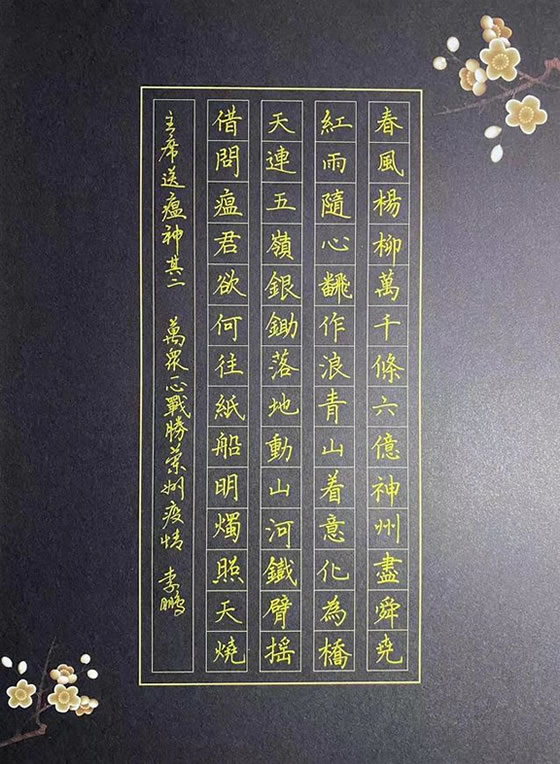 春風楊柳萬千條六億神州盡舜堯
紅雨隨心飜作浪青山着意化為橋
天連五嶺銀鋤落地動山河鐵臂摇
借問瘟君欲何往紙船明燭照天燒
主席送瘟神其二 萬衆一心戰勝蘭州疫情 李鵬